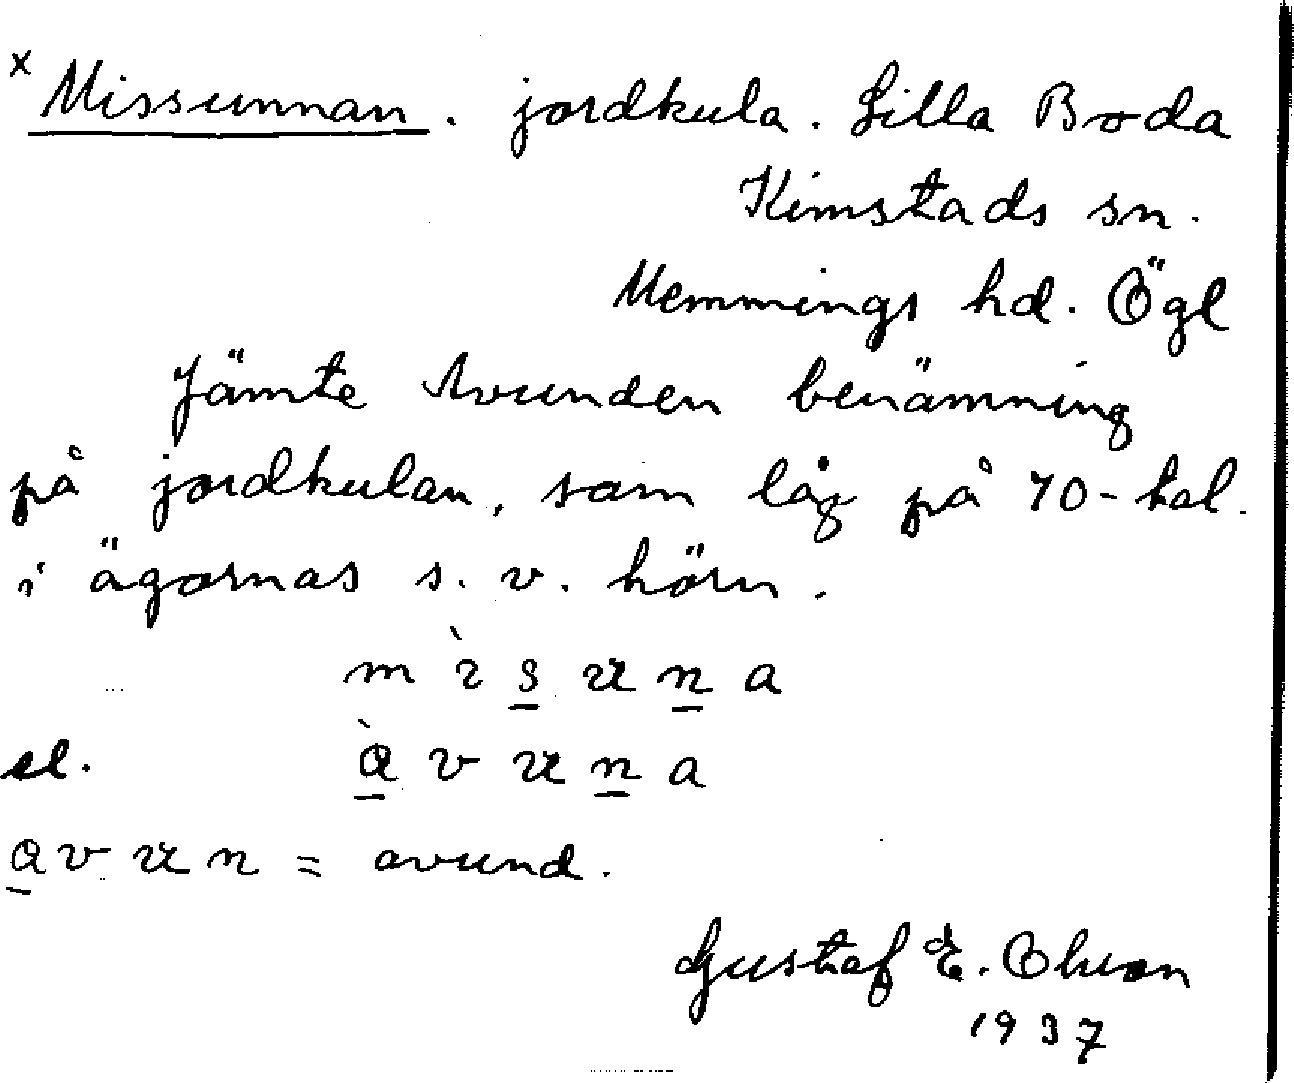 x Missunnan. jordkula. Lilla Boda
Kimstads sn.
Memmings hd. Ögl
Jämte Avunden benämning
på jordkulan, som låg på 70-tal.
i ägornas s. v. hörn.
m ì s u n a
el. à v u n a
a v u n = avund.
Gustaf E. Olsson
1937